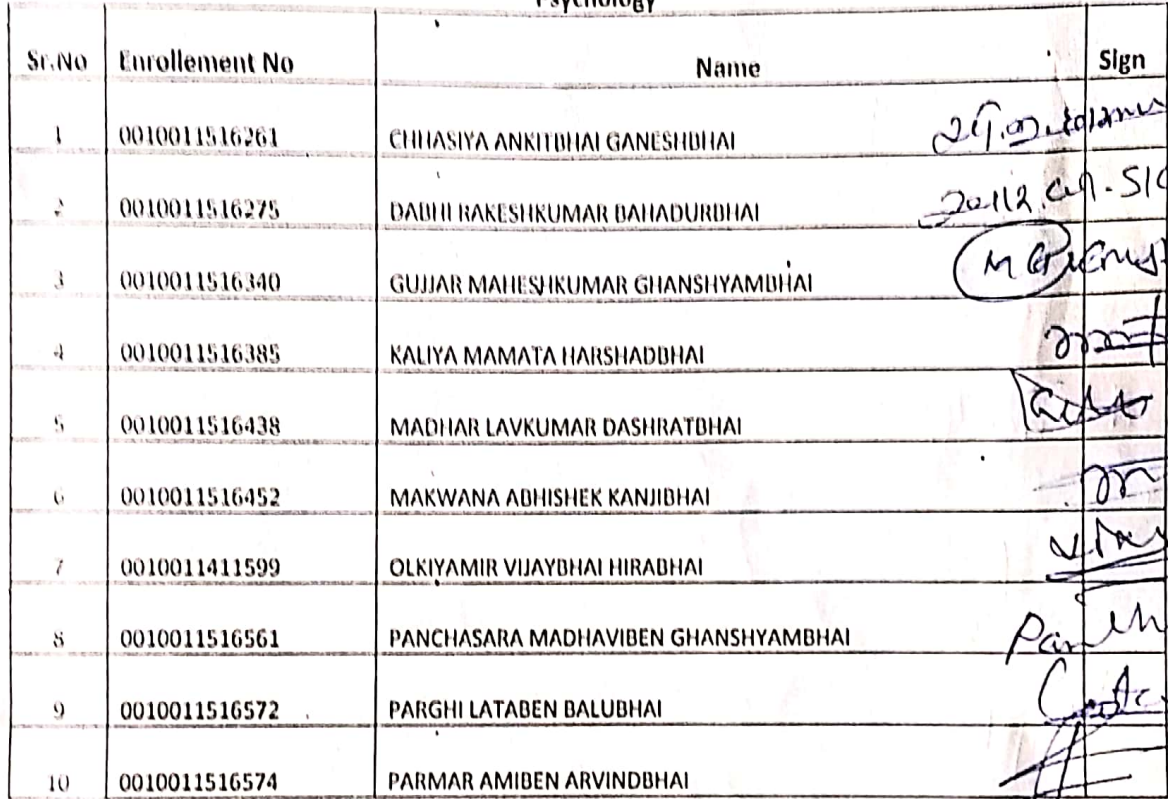 Psychology
Sr.No Enrollement No Name Sign
1 0010011516261 CHHASIYA ANKITBHAI GANESHBHAI
2 0010011516275 DABHI RAKESHKUMAR BAHADURBHAI
3 0010011516340 GUJJAR MAHESHKUMAR GHANSHYAMBHAI
4 0010011516385 KALIYA MAMATA HARSHADBHAI
5 0010011516438 MADHAR LAVKUMAR DASHRATBHAI
6 0010011516452 MAKWANA ABHISHEK KANJIBHAI
7 0010011411599 OLKIYAMIR VIJAYBHAI HIRABHAI
8 0010011516561 PANCHASARA MADHAVIBEN GHANSHYAMBHAI
9 0010011516572 PARGHI LATABEN BALUBHAI
10 0010011516574 PARMAR AMIBEN ARVINDBHAI